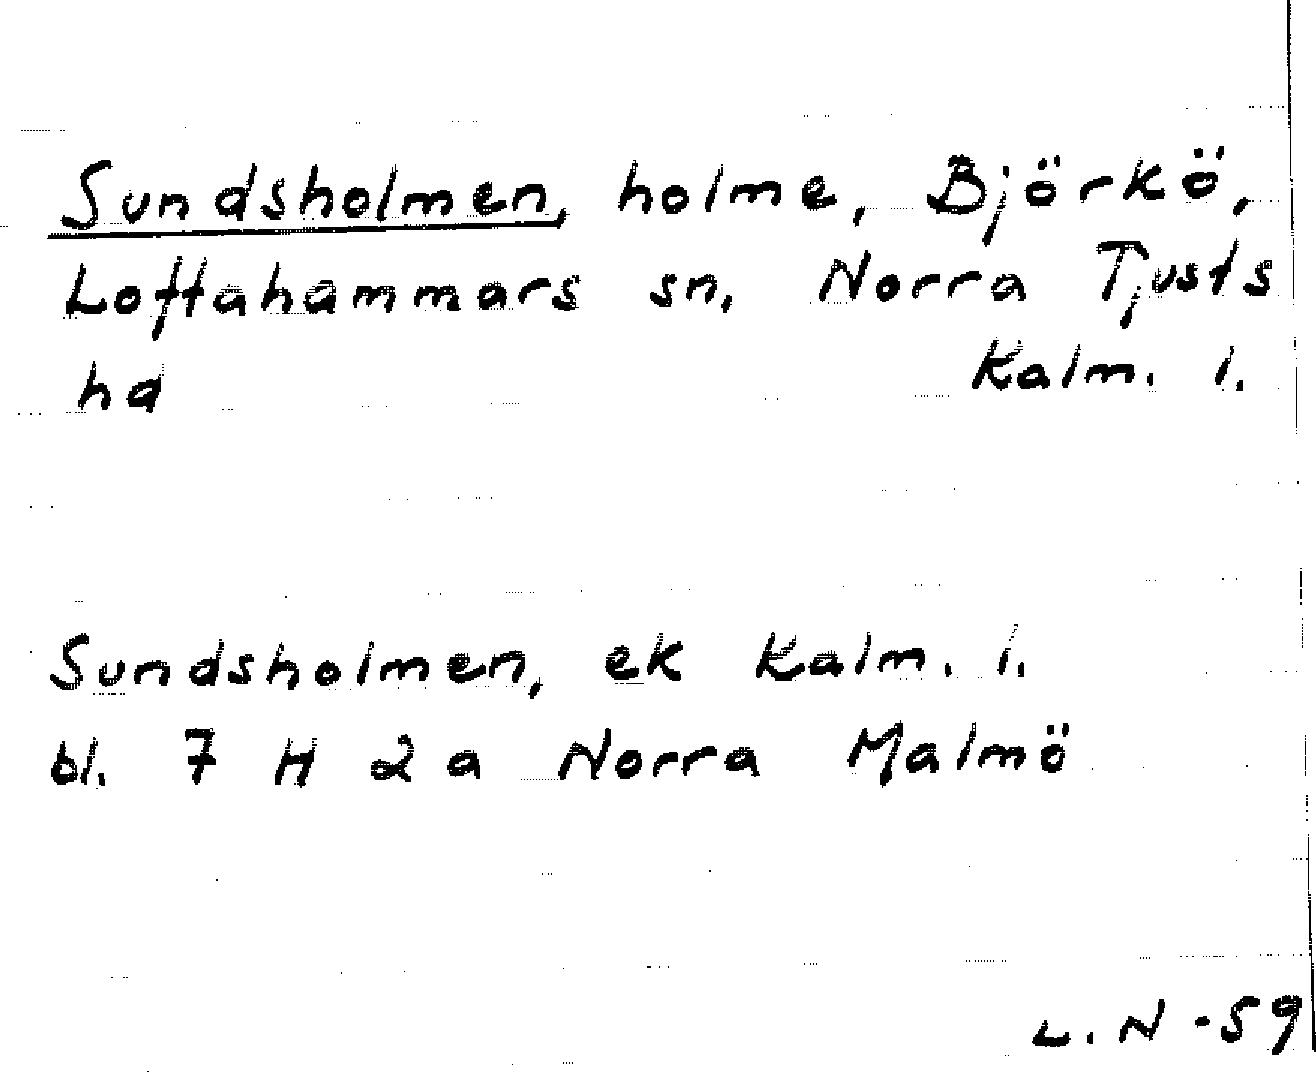 Sundsholmen, holme, Björkö,
Loftahammars sn, Norra Tjusts
hd Kalm. l.
Sundsholmen, ek Kalm. l.
bl. 7 H 2 a Norra Malmö
L. N -59